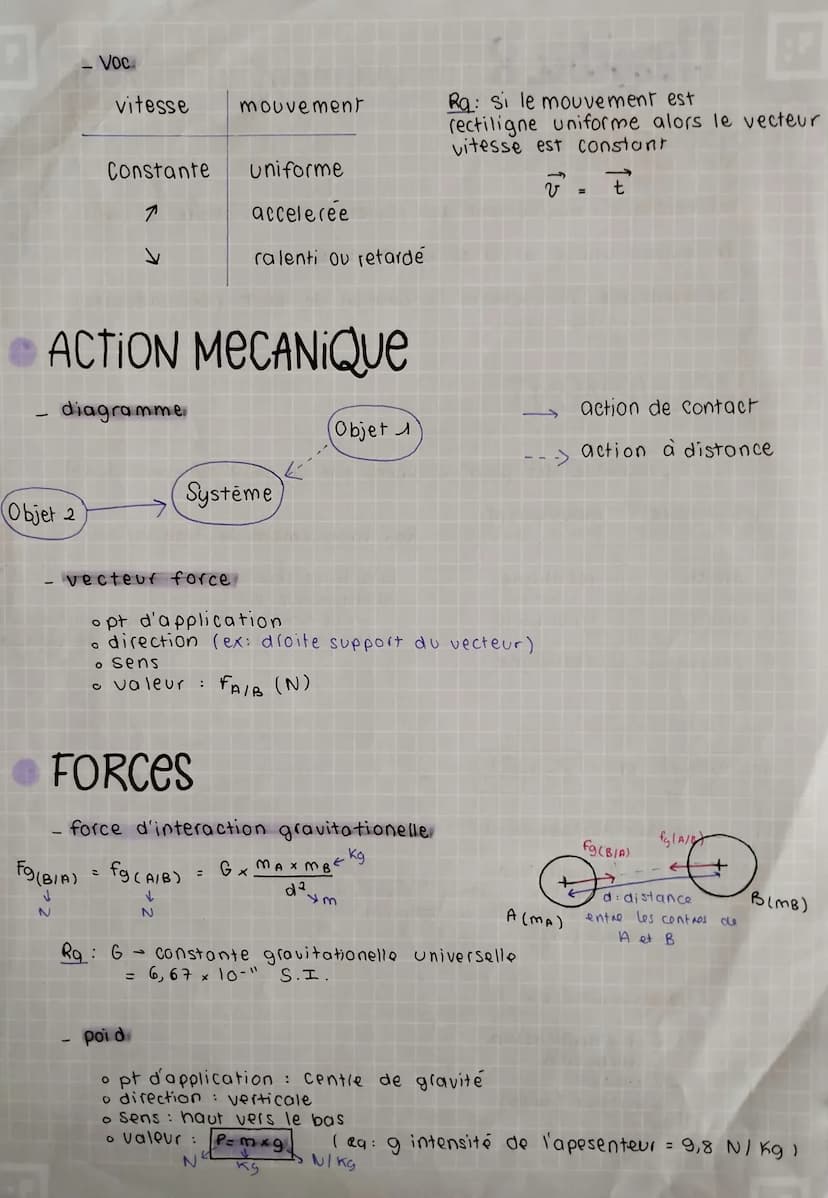 - Voc.
vitesse mouvement
Constante uniforme
↗ accelerée
↘ ralenti ou retardé
Rq: si le mouvement est
rectiligne uniforme alors le vecteur
vitesse est constant
v⃗ = t⃗
ACTION MECANIQUE
- diagramme
Objet 1
Système
Objet 2
→ action de contact
---> action à distance
- vecteur force
∘ pt d'application
∘ direction (ex: droite support du vecteur)
∘ sens
∘ valeur : FA/B (N)
FORCES
- force d'interaction gravitationelle
Fg(B/A) = fg(A/B) = G × mA × mB / d² ← Kg
↓ N ↓ N ↘ m
Fg(B/A) fg(A/B)
A(mA) B(mB)
d: distance
entre les centres de
A et B
Rq: G → constante gravitationelle universelle
= 6,67 × 10-11 S.I.
- poid
∘ pt d'application : centre de gravité
∘ direction : verticale
∘ sens : haut vers le bas
∘ valeur : P= m×g (rq: g intensité de l'apesenteur = 9,8 N/Kg)
N Kg N/Kg